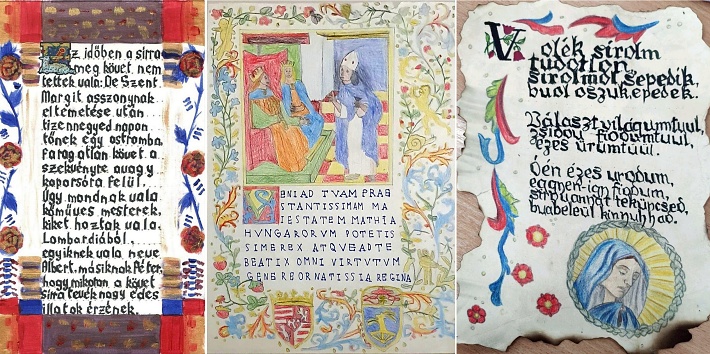 Az időben a sirra
meg követ nem
tettek vala: De Szent
Margit asszonynak
eltemetése után
tizennegyed napon
tőnek egy ostromba
faragatlan követ a
szekvényre avagy
koporsóra felül.
Úgy mondnak vala
kőműves mesterek,
kiket hoztak vala
Lombardiából.
egyiknek vala neve
Albert, másiknak Péter,
hogy mikoron a követ
sirra tevék nagy édes
illatok érzének.
VENIAD TVAM PRAE
STANTISSIMAM MA
IESTATEM MATHIA
HUNGARORUM POTETIS
SIME REX ATQUE ADTE
BEATIX OMNI VIRTVTUM
GENERE ORNATISSIA REGINA
Volék sirolm
tudotlon
sirolmol sepedik,
buol oszuk, epedek.
Választ világumtuul,
zsidou fiodumtuul,
ézes ürümtüül.
Óén ézes urodum,
eggyen-igy fiodum,
sirou anyát teküncséd,
buabeleül kinyuhhad.